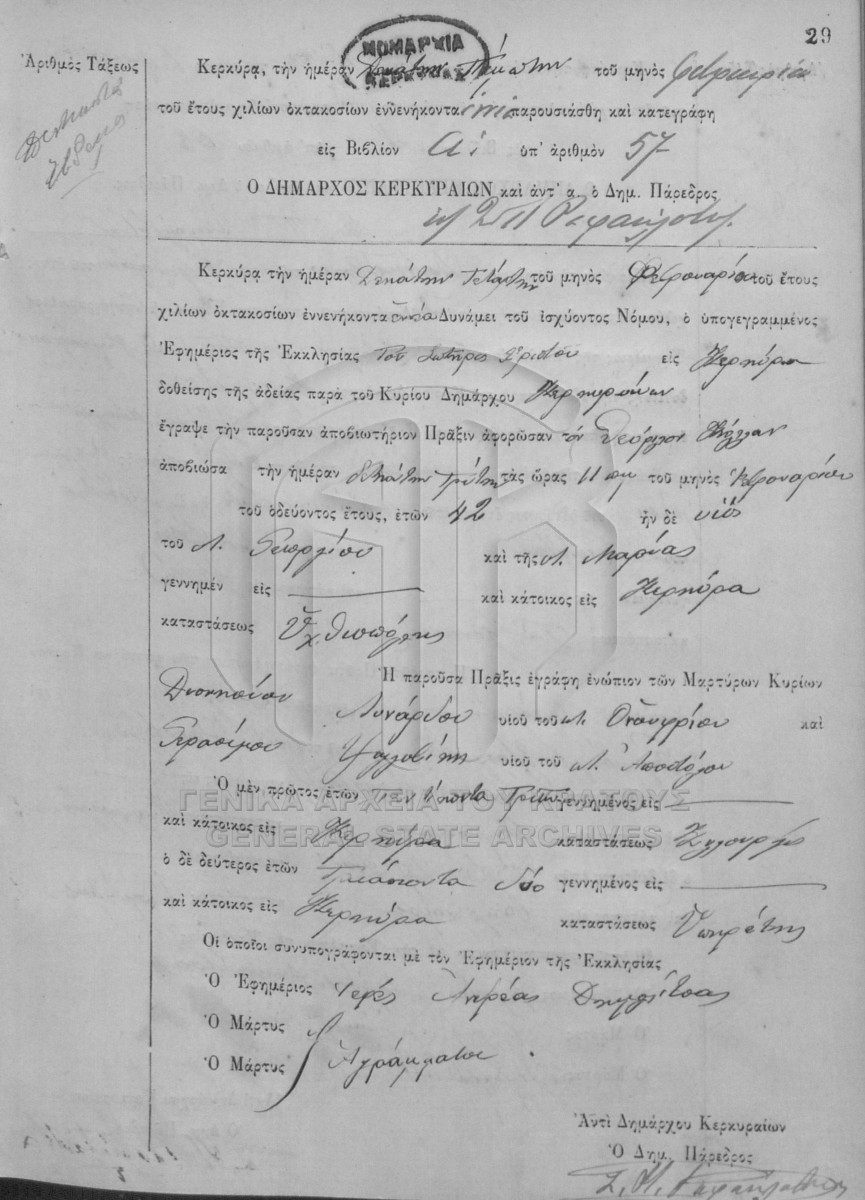 29
ΝΟΜΑΡΧΙΑ
ΚΕΡΚΥΡΑΣ
Ἀριθμὸς Τάξεως
Κερκύρᾳ, τὴν ἡμέραν Δεκάτην Πέμπτην τοῦ μηνὸς Φεβρουαρίου
τοῦ ἔτους χιλίων ὀκτακοσίων ἐννενήκοντα ἐννέα παρουσιάσθη καὶ κατεγράφη
εἰς Βιβλίον Α' ὑπ' ἀριθμὸν 57
Ο ΔΗΜΑΡΧΟΣ ΚΕΡΚΥΡΑΙΩΝ καὶ ἀντ' α. ὁ Δημ. Πάρεδρος
Κερκύρᾳ τὴν ἡμέραν Δεκάτην Τετάρτην τοῦ μηνὸς Φεβρουαρίου τοῦ ἔτους
χιλίων ὀκτακοσίων ἐννενήκοντα ἐννέα Δυνάμει τοῦ ἰσχύοντος Νόμου, ὁ ὑπογεγραμμένος
Ἐφημέριος τῆς Ἐκκλησίας τοῦ Σωτῆρος Χριστοῦ εἰς Κέρκυραν
δοθείσης τῆς ἀδείας παρὰ τοῦ Κυρίου Δημάρχου Κερκυραίων
ἔγραψε τὴν παροῦσαν ἀποβιωτήριον Πρᾶξιν ἀφορῶσαν τόν Γεώργιον
ἀποβιώσα τὴν ἡμέραν Δεκάτην Τρίτην τὰς ὥρας 11 πμ τοῦ μηνὸς Φεβρουαρίου
τοῦ ὁδεύοντος ἔτους, ἐτῶν 42 ἦν δὲ υἱός
τοῦ Γεωργίου καὶ τῆς Μαρίας
γεννημέν εἰς καὶ κάτοικος εἰς Κέρκυρα
καταστάσεως
Ἡ παροῦσα Πρᾶξις ἐγράφη ἐνώπιον τῶν Μαρτύρων Κυρίων
Διονυσίου Λυνάρδου υἱοῦ τοῦ Ὀνουφρίου καὶ
Γερασίμου υἱοῦ τοῦ Ἀποστόλου
Ὁ μὲν πρῶτος ἐτῶν Τρίων γεννημένος εἰς
καὶ κάτοικος εἰς Κέρκυρα καταστάσεως Ξυλουργός
ὁ δὲ δεύτερος ἐτῶν Τριάκοντα δύο γεννημένος εἰς
καὶ κάτοικος εἰς Κέρκυρα καταστάσεως Ὑπηρέτης
Οἱ ὁποῖοι συνυπογράφονται μὲ τὸν Ἐφημέριον τῆς Ἐκκλησίας
Ὁ Ἐφημέριος Ἱερεὺς Ἀνδρέας
Ὁ Μάρτυς
Ὁ Μάρτυς Ἀγράμματοι
Ἀντὶ Δημάρχου Κερκυραίων
Ὁ Δημ. Πάρεδρος
ΓΕΝΙΚΑ ΑΡΧΕΙΑ ΤΟΥ ΚΡΑΤΟΥΣ
GENERAL STATE ARCHIVES